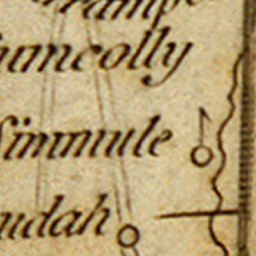 umcolly
Simmule
udah